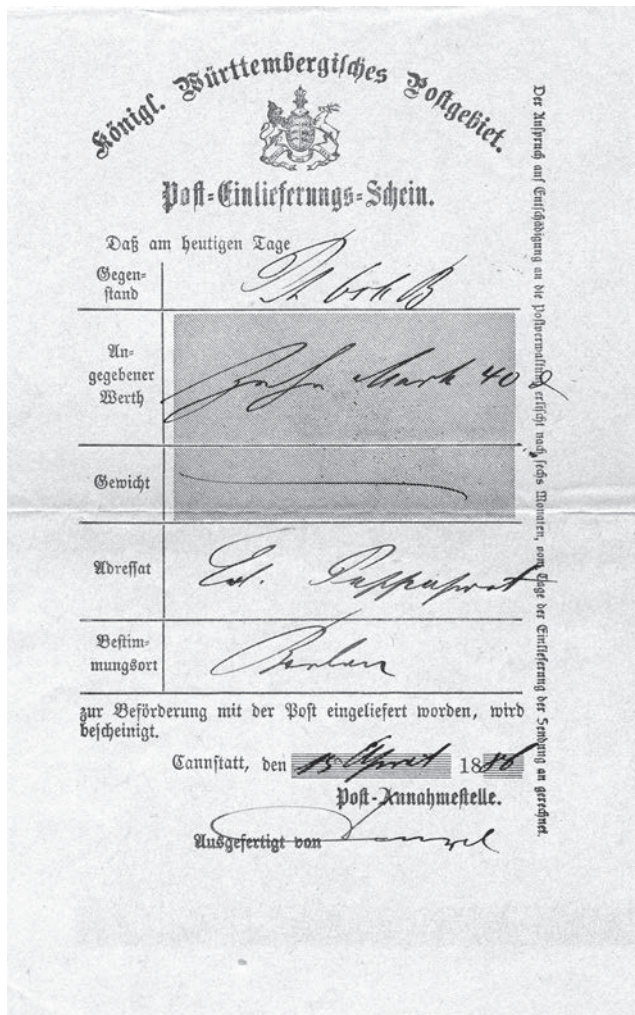 Königl. Württembergisches Postgebiet.
Post-Einlieferungs-Schein.
Daß am heutigen Tage
Gegen-
stand
An-
gegebener
Werth
Mark 40
Gewicht
Adressat
Bestim-
mungsort
Berlin
zur Beförderung mit der Post eingeliefert worden, wird
bescheinigt.
Cannstatt, den 15 April 1886
Post-Annahmestelle.
Ausgefertigt von
Der Anspruch auf Entschädigung an die Postverwaltung erlischt nach sechs Monaten, vom Tage der Einlieferung der Sendung an gerechnet.